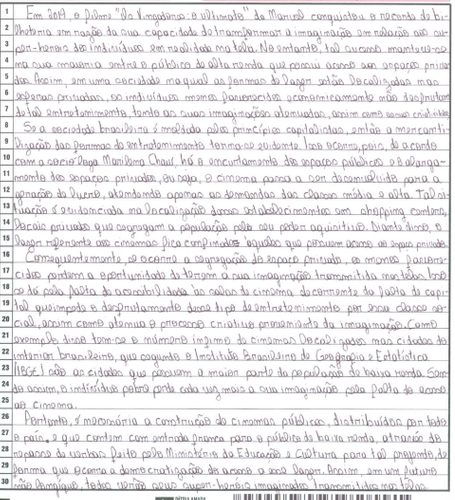 1 Em 2019, o filme "Os Vingadores: o ultimato" da Marvel conquistou o recorde de bi-
2 lheteria em razão da sua capacidade de transformar a imaginação em relação aos su-
3 per-heróis dos indivíduos em realidade na tela. No entanto, tal sucesso manteve-se
4 na sua maioria entre o público de alta renda que possui acesso aos espaços priva-
5 dos. Assim, em uma sociedade na qual as formas de lazer estão localizadas nas
6 esferas privadas, os indivíduos menos favorecidos economicamente não desfrutam
7 de tal entretenimento, tendo as suas imaginações atenuadas, assim como
8 Se a sociedade brasileira é moldada pelos princípios capitalistas, então a mercanti-
9 lização das formas de entretenimento torna-se evidente. Isso ocorre, pois, de acordo
10 com a socióloga Marilena Chauí, há o encurtamento dos espaços públicos e o alarga-
11 mento dos espaços privados, ou seja, o cinema passa a ser desenvolvido para a
12 geração de lucro, atendendo apenas as demandas das classes média e alta. Tal si-
13 tuação é evidenciada na localização desses estabelecimentos em shopping centers,
14 locais privados que segregam a população pelo seu poder aquisitivo. Diante disso, o
15 lazer referente aos cinemas fica confinado àqueles que possuem acesso ao espaço privado.
16 Consequentemente, se ocorre a segregação do espaço privado, os menos favore-
17 cidos perdem a oportunidade de terem a sua imaginação transmitida nas telas. Isso
18 se dá pela falta de acessibilidade às salas de cinema decorrente da falta de capi-
19 tal que impede o desfrutamento desse tipo de entretenimento por essa classe so-
20 cial, assim como atenua o processo criativo proveniente da imaginação. Como
21 exemplo disso tem-se o número ínfimo de cinemas localizados nas cidades do
22 interior brasileiro, que segundo o Instituto Brasileiro de Geografia e Estatística
23 (IBGE) são as cidades que possuem a maior parte da população de baixa renda. Sem
24 o acesso, o indivíduo pobre perde cada vez mais a sua imaginação pela falta do acesso
25 ao cinema.
26 Portanto, é necessária a construção de cinemas públicos, distribuídos por todo
27 o país, e que contem com entrada franca para o público de baixa renda, através do
28 repasse de verbas feito pelo Ministério da Educação e Cultura para tal projeto, de
29 forma que ocorra a democratização do acesso a esse lazer. Assim, em um futuro
30 não longínquo, todos verão seus super-heróis imaginados transmitidos nas telas.